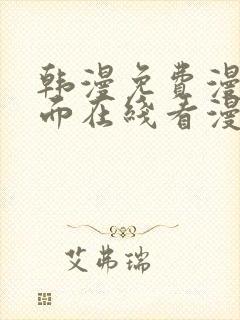 韩漫免费漫
而在线看漫
艾弗瑞